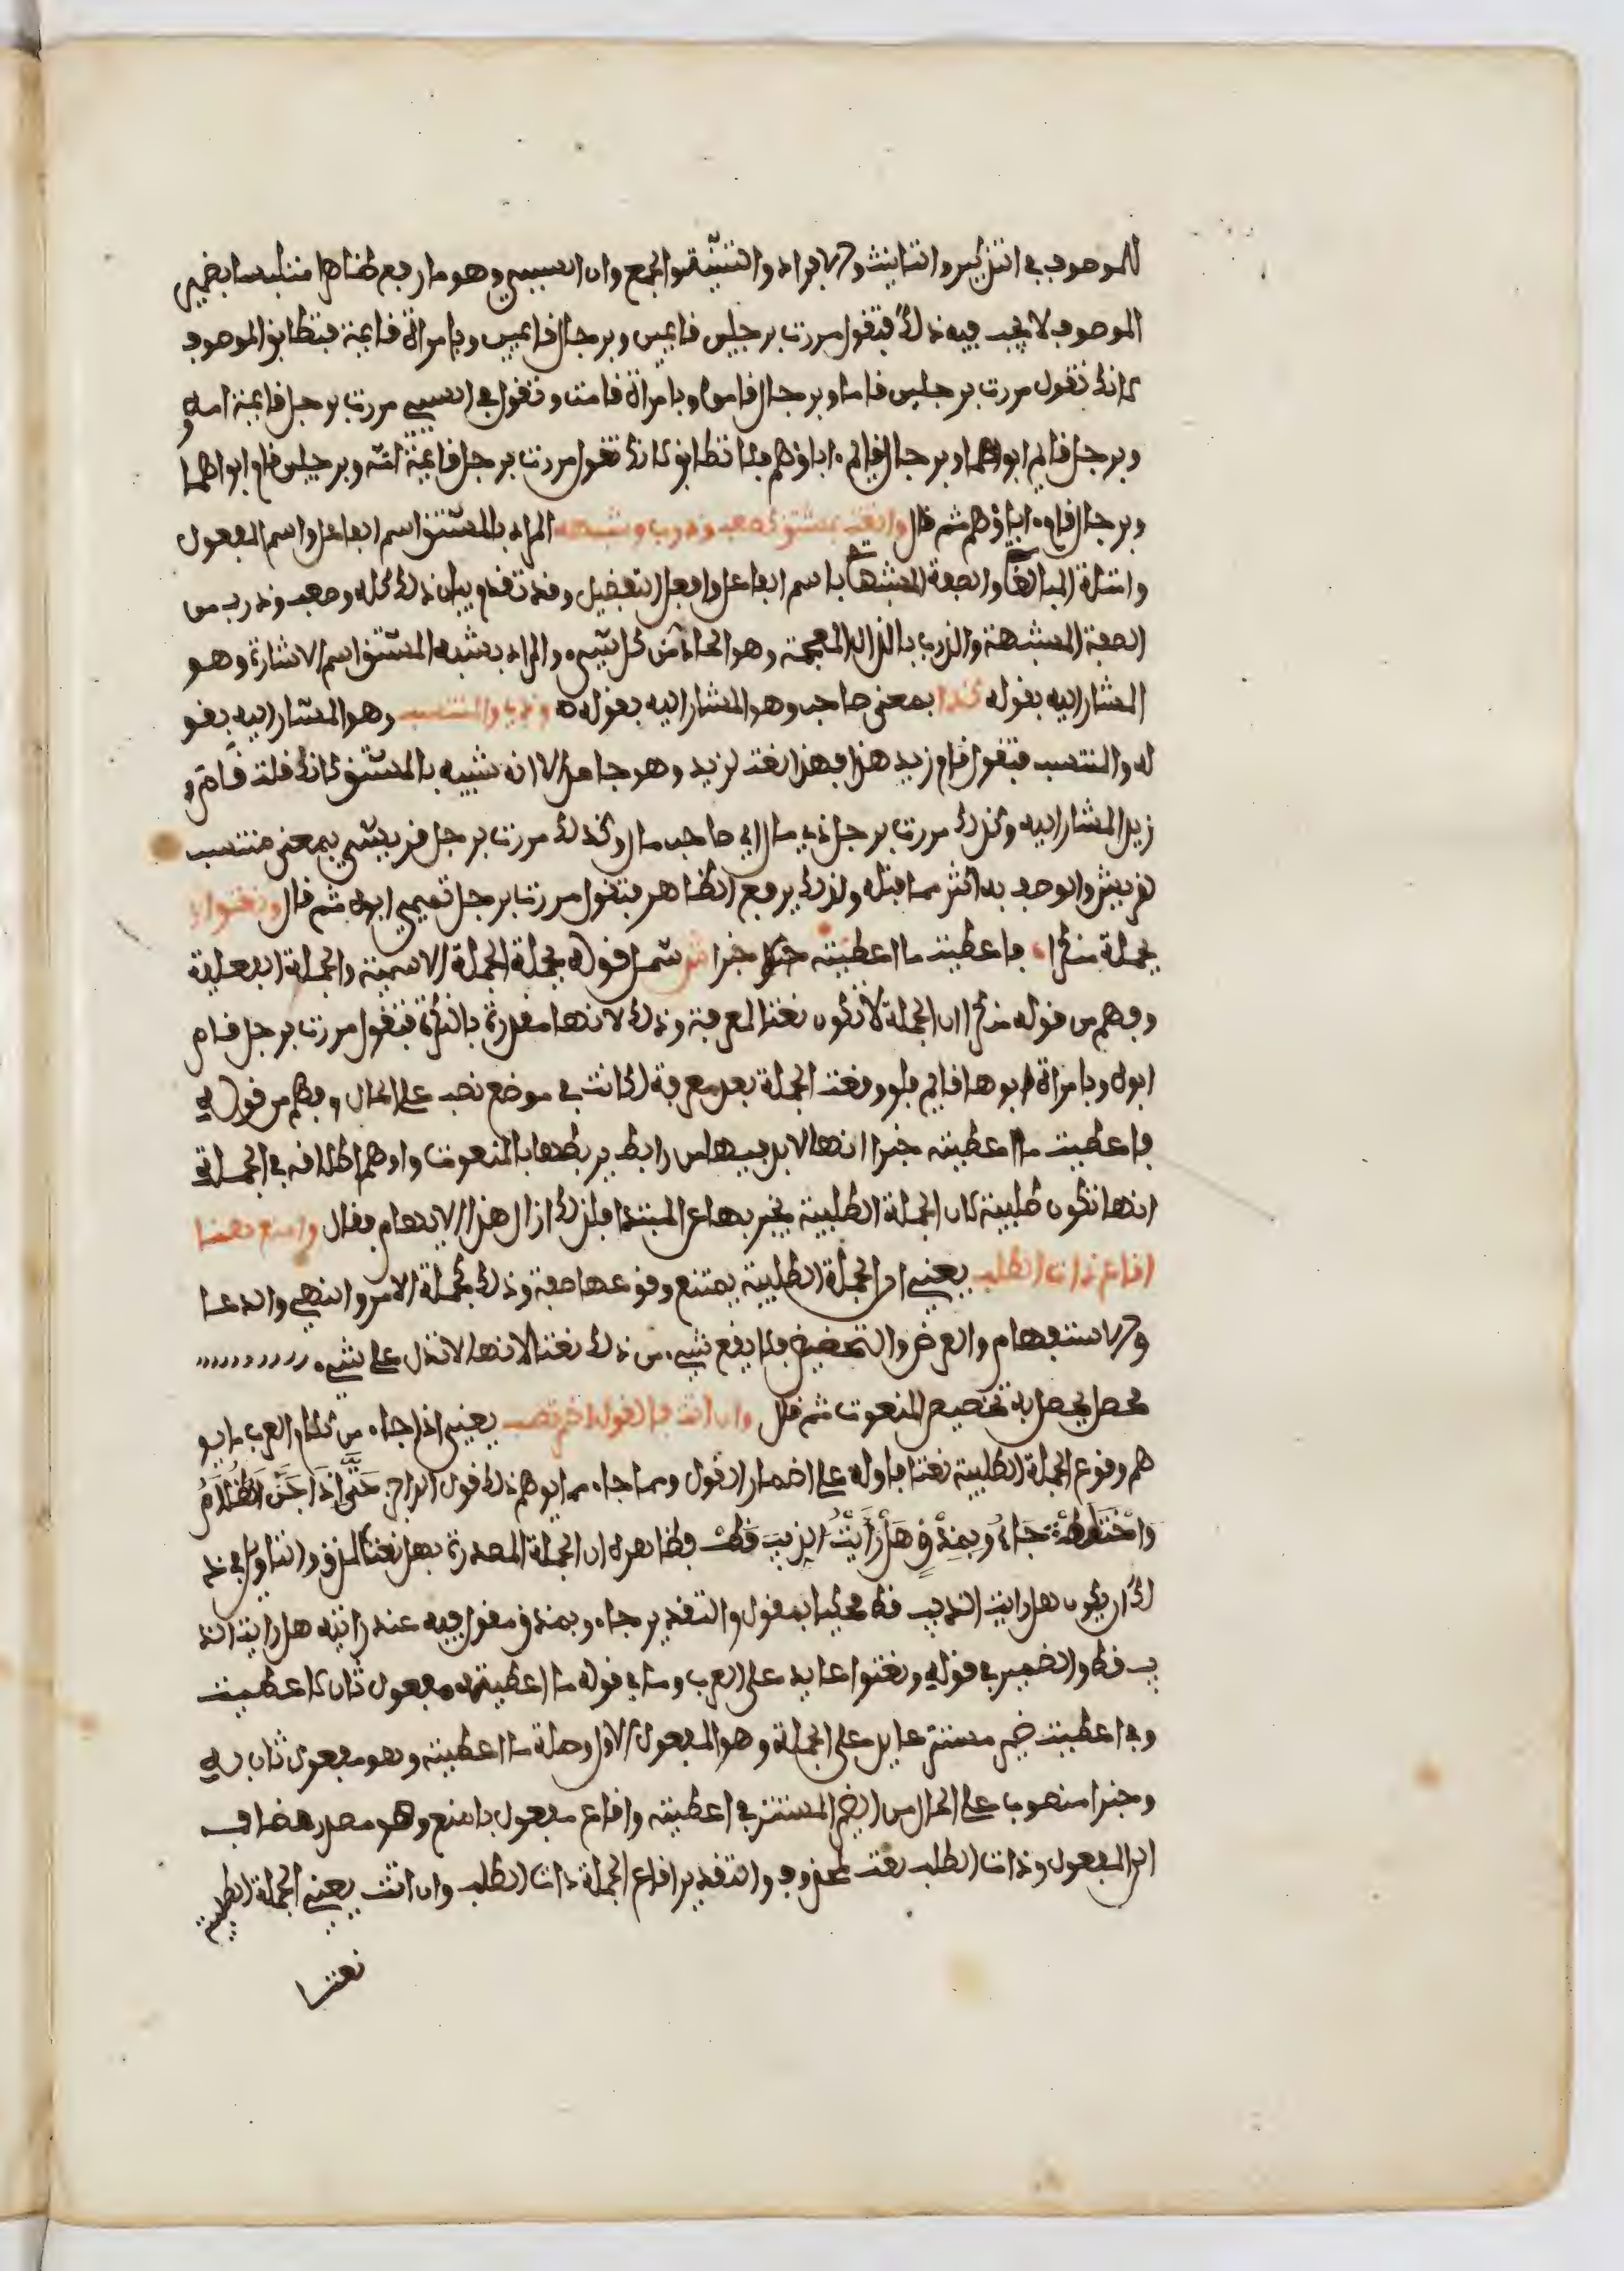 للموصوف في التذكير والتانيث والافراد والتثنية والجمع وان السببي وهو ما رفع ظاهرا متلبسا بضمير
الموصوف لا يجب فيه ذلك فتقول مررت برجلين قايمين وبرجال قايمين وبامراة قايمة فتطابق الموصوف
كانك تقول مررت برجلين قاما وبرجال قاموا وبامراة قامت وتقول في السببي مررت برجل قايمة امه
وبرجل قايم ابواهما وبرجال قايم اباؤهم فلا تطابق كانك تقول مررت برجل قايمة امه وبرجلين قام ابواهما
وبرجال قام اباؤهم ثم قال وانعت بمشتق كصعب وذرب وشبهه المراد بالمشتق اسم الفاعل واسم المفعول
وامثلة المبالغة والصفة المشبهة باسم الفاعل وافعل التفضيل وقد تقدم بيان ذلك كله وصعب وذرب من
الصفة المشبهة والذرب بالذال المعجمة وهو الحاد من كل شيء والمراد بشبه المشتق اسم الاشارة وهو
المشار اليه بقوله كذا بمعنى صاحب وهو المشار اليه بقوله وذي والمنتسب وهو المشار اليه بقو
له والمنتسب فتقول قام زيد هذا فهذا نعت لزيد وهو جامد الا انه شبيه بالمشتق كانك قلت قام
زيد المشار اليه وكذلك مررت برجل ذي مال اي صاحب مال وكذلك مررت برجل قريشي بمعنى منتسب
لقريش والوصف به اكثر مما قبله ولذلك يرفع الظاهر فتقول مررت برجل تميمي ابوه ثم قال ونعتوا
بجملة منكرا فاعطيت ما اعطيته خبرا شمل قوله بجملة الجملة الاسمية والجملة الفعلية
وفهم من قوله منكرا ان الجملة لا تكون نعتا لمعرفة وذلك لانها مقدرة بالنكرة فتقول مررت برجل قام
ابوه وبامراة ابوها قايم فلو وقعت الجملة بعد معرفة لكانت في موضع نصب على الحال وفهم من قوله
فاعطيت ما اعطيته خبرا انها لا بد فيها من رابط يربطها بالمنعوت واوهم اطلاقه في الجملة
انها تكون طلبية كان الجملة الطلبية يخبر بها عن المبتدا فلذلك ازال هذا الايهام فقال وامنع هنا
ايقاع ذات الطلب يعني ان الجملة الطلبية يمتنع وقوعها صفة وذلك كجملة الامر والنهي والدعا
والاستفهام والعرض والتحضيض فلا يقع شيء من ذلك نعتا لانها لا تدل على شيء
محصل يحصل به تخصيص المنعوت ثم قال وان اتت فالقول اضمر تصب يعني اذا جاء من كلام العرب ما يو
هم وقوع الجملة الطلبية نعتا فاوله على اضمار القول ومما جاء مما يوهم ذلك قول الراجز حَتَّى اذَا جَنَّ الظَّلَامُ
وَاخْتَلَطْ جَاءُوا بِمَذْقٍ هَلْ رَأَيْتَ الذيبَ قَطْ فظاهره ان الجملة المصدرة بهل نعتا لمذق والتاويل في ذ
لك ان يكون هل رايت الذيب قط محكيا بمقول والتقدير جاءوا بمذق مقول فيه عند رايته هل رايت الذ
يب قط والضمير في قوله ونعتوا عايد على العرب وما في قوله ما اعطيته مفعول ثان لاعطيت
وفي اعطيت ضمير مستتر عايد على الجملة وهو المفعول الاول وصلة ما اعطيته وهو مفعول ثان له
وخبرا منصوب على الحال من الضمير المستتر في اعطيته وايقاع مفعول بامنع وهو مصدر مضاف
الى المفعول وذات الطلب نعت لمحذوف والتقدير ايقاع الجملة ذات الطلب وان اتت يعني الجملة الطلبية
نعتا